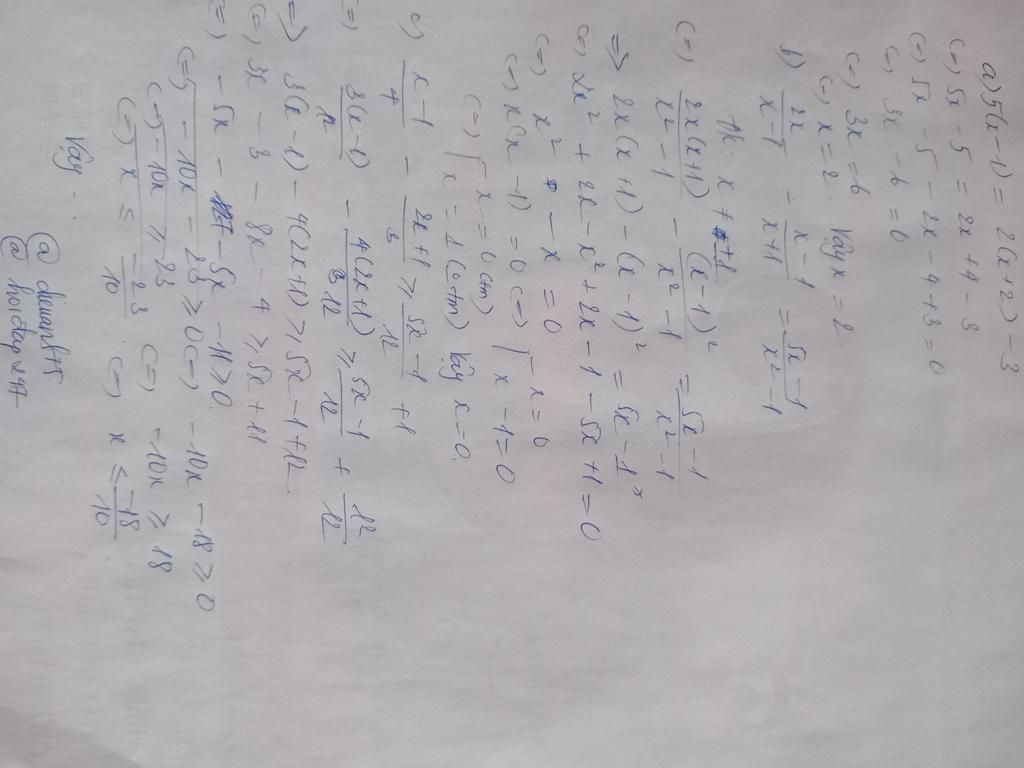 a) 5(x-1) = 2(x+2) - 3
(=) 5x - 5 = 2x + 4 - 3
(=) 5x - 5 - 2x - 4 + 3 = 0
(=) 3x - 6 = 0
(=) 3x = 6
(=) x = 2. Vậy x = 2.
b) 2x/x-1 - x-1/x+1 = 5x-1/x²-1
ĐK: x ≠ ±1
(=) 2x(x+1)/x²-1 - (x-1)²/x²-1 = 5x-1/x²-1
=> 2x(x+1) - (x-1)² = 5x-1
(=) 2x² + 2x - x² + 2x - 1 - 5x + 1 = 0
(=) x² - x = 0
(=) x(x-1) = 0 (=) [ x = 0
x-1 = 0
(=) [ x = 0 (tm)
x = 1 (0 tm) Vậy x = 0.
c) x-1/4 - 2x+1/3 ≥ 5x-1/12 + 1
(=) 3(x-1)/12 - 4(2x+1)/12 ≥ 5x-1/12 + 12/12
=> 3(x-1) - 4(2x+1) ≥ 5x-1+12
(=) 3x - 3 - 8x - 4 ≥ 5x + 11
(=) -5x - - 5x - 11 ≥ 0
(=) -10x - 23 ≥ 0 (=) -10x - 18 ≥ 0
(=) -10x ≥ 23 (=) -10x ≥ 18
(=) x ≤ -23/10 (=) x ≤ -18/10.
Vậy.
@
@ hoidap247